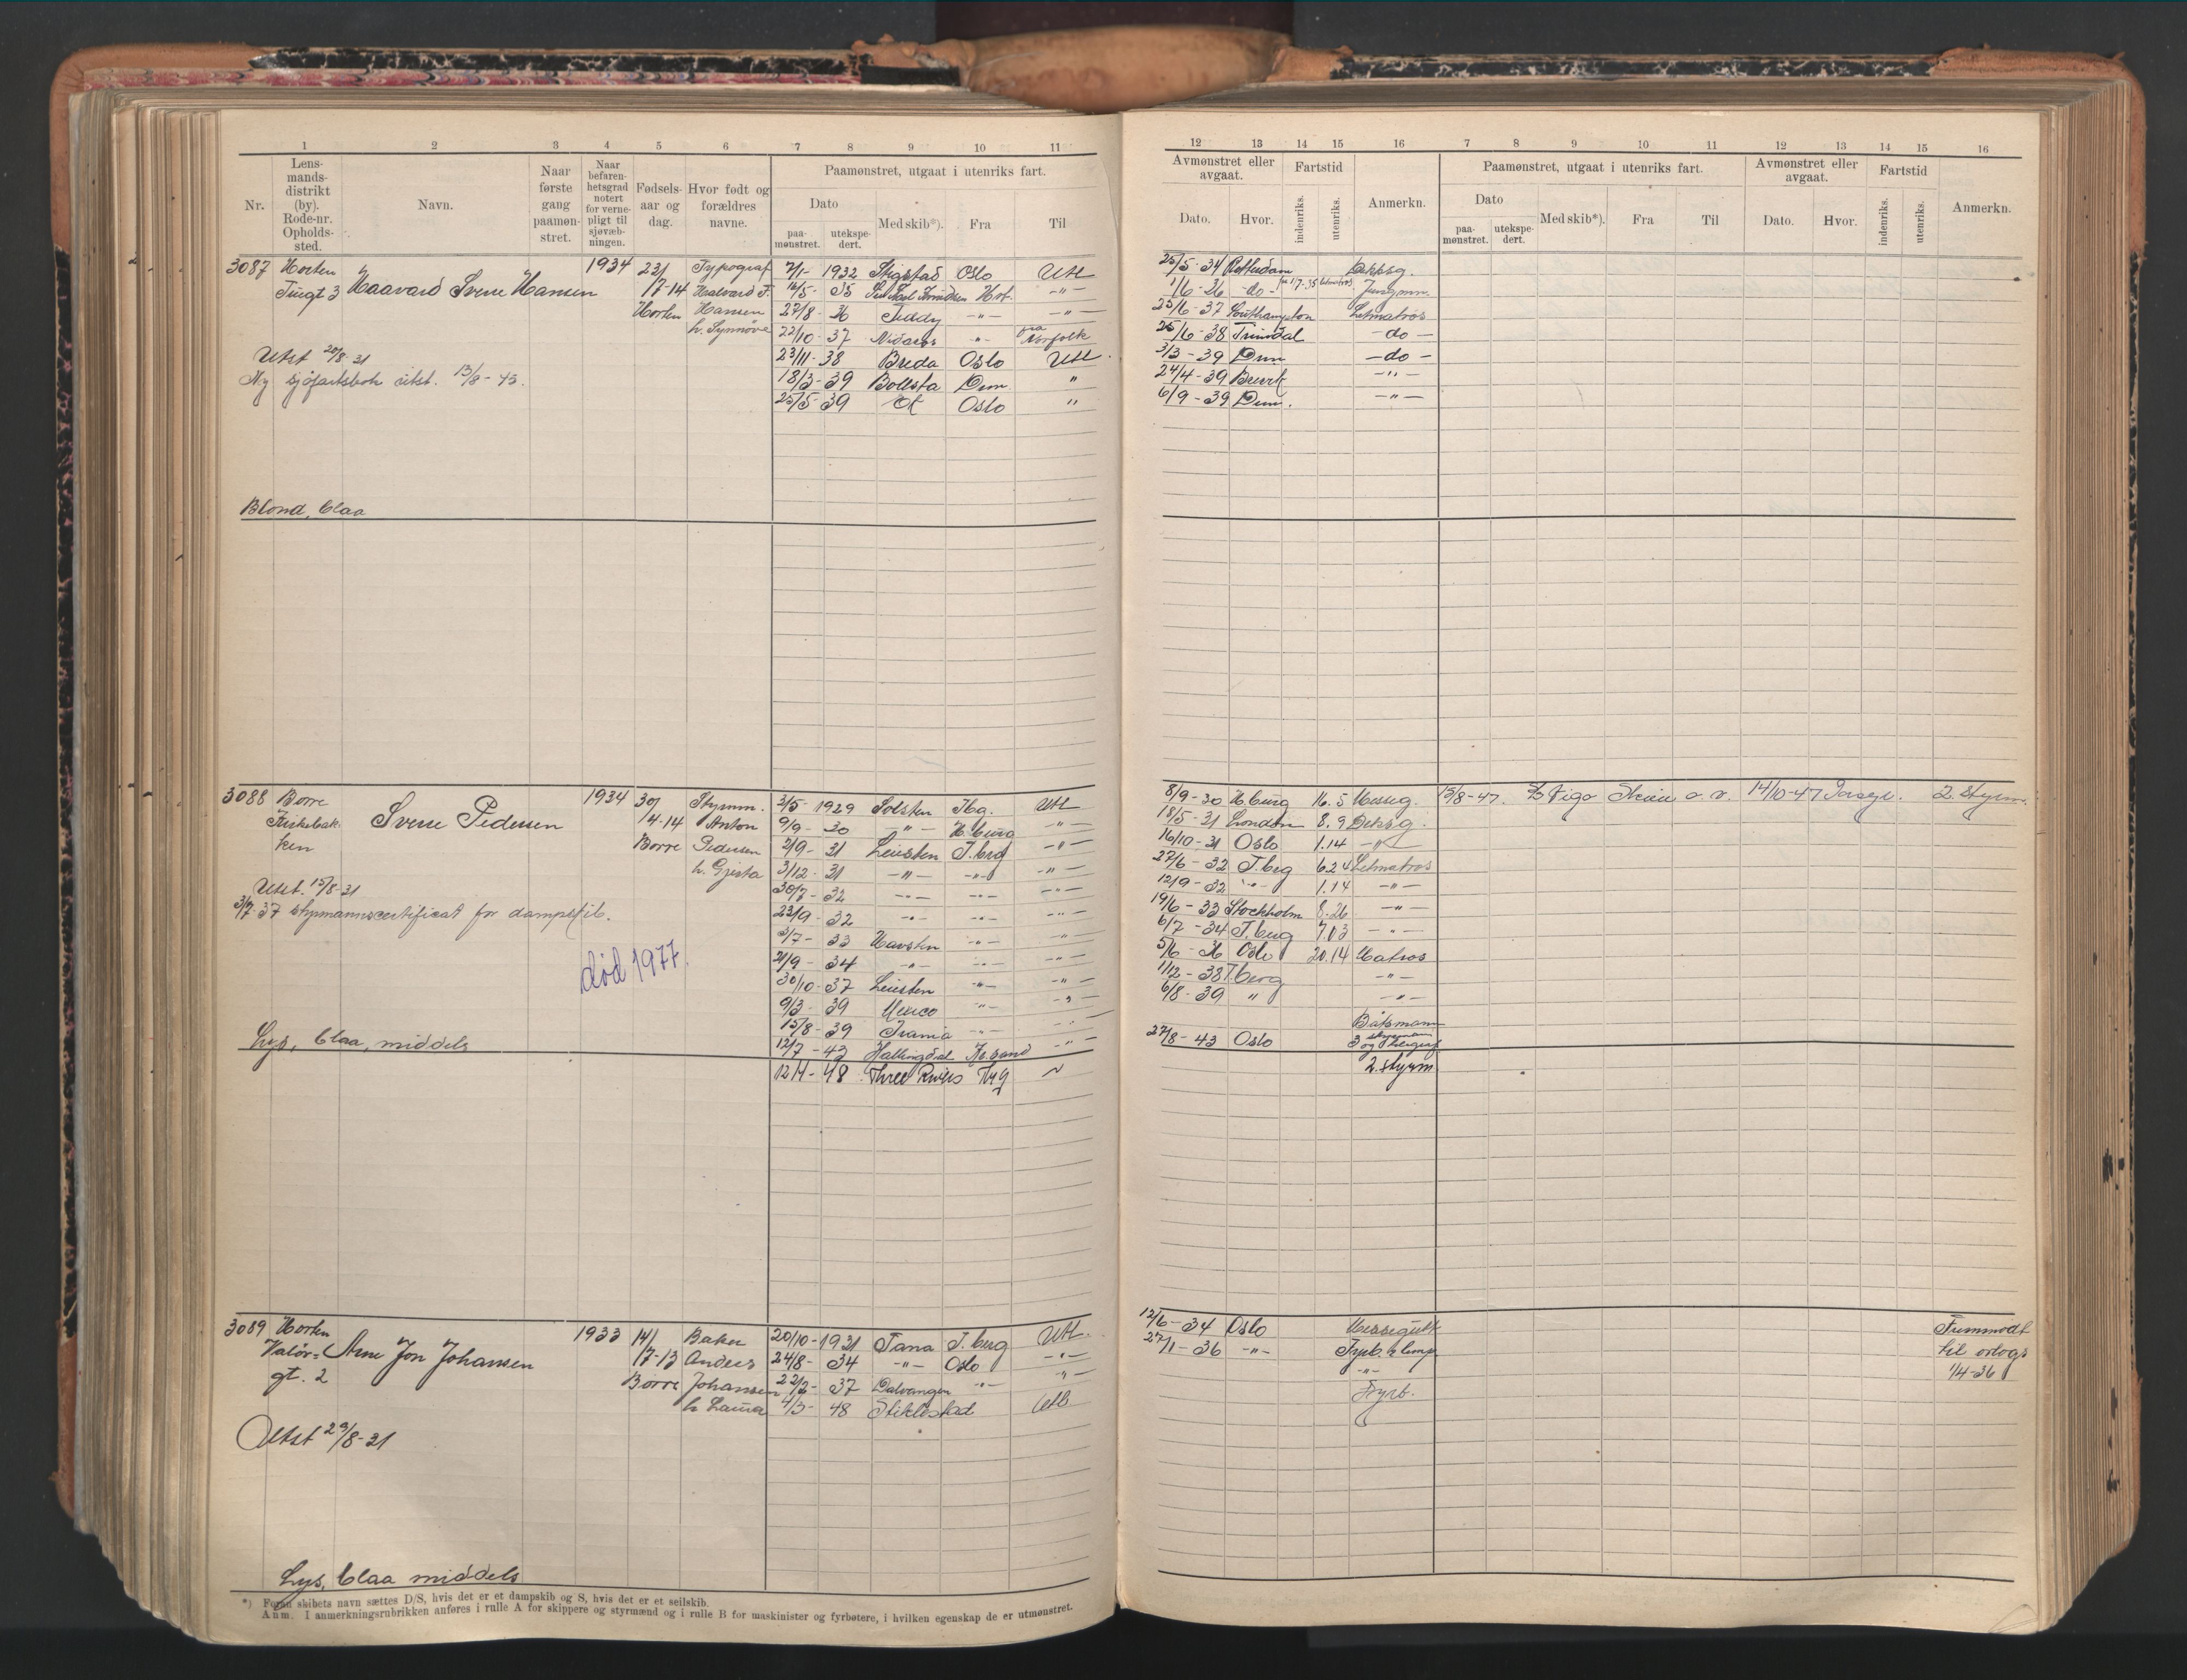 1 2 3 4 5 6 7 8 9 10 11
Nr. Lensmandsdistrikt (by). Rode-nr. Opholdssted. Navn. Naar første gang paamønstret. Naar befarenhetsgrad notert for vernepligt til sjøvæbningen. Fødselsaar og dag. Hvor født og forældres navne. Paamønstret, utgaat i utenriks fart.
Dato paamønstret. utekspedert. Med skib*). Fra Til
12 13 14 15 16 7 8 9 10 11 12 13 14 15 16
Avmønstret eller avgaat. Fartstid Anmerkn. Paamønstret, utgaat i utenriks fart. Avmønstret eller avgaat. Fartstid Anmerkn.
Dato. Hvor. indenriks. utenriks. Dato paamønstret. utekspedert. Med skib*). Fra Til Dato. Hvor. indenriks. utenriks.
3087 Horten 1934 23/ Typograf 7/1- 1932 Stigstad Oslo Utl
Tingt 3 Haavard Sverre Hansen 7-14 Halvard F. 16/5- 35 Knudsen Hbt. -"-
Horten Hansen 27/8- 36 Teddy -"- -"-
h. Synnøve 22/10- 37 Nidaros -"- Norfolk
Utst 20/8-31 23/11- 38 Breda Oslo Utl
Ny sjøfartsbok utst. 13/8-45. 18/3- 39 Bollsta Dun "
25/5- 39 Oslo "
Blond, blaa
25/5-34 Rotterdam Dekksg.
1/6-36 -do- Jungmn.
23/6-37 Southampton Letmatros
25/6-38 Trinidad -do-
3/3-39 Dun -do-
24/4-39 Brevik -"-
6/9-39 Dun. -"-
3088 Borre 1934 30/ Styrm. 3/5- 1929 Solsten Tbg. Utl
Kirkebak Sverre Pedersen 4-14 Anton 9/9- 30 -"- H.burg -"-
ken Borre Pedersen 2/9- 31 Leiesten T.berg -"-
h. Gjerta 3/12- 31 -"- -"- -"-
Utst. 15/8-31 30/7- 32 -"- -"- -"-
3/7-37 styrmannscertificat for dampskib. 23/9- 32 -"- -"- -"-
3/7- 33 Havsten -"- -"-
død 1977. 21/9- 34 -"- -"- -"-
30/10- 37 Leiesten -"- -"-
9/3- 39 Mexico -"- -"-
15/8- 39 Irania -"- -"-
Lys, blaa, middels 12/7- 43 Hallingdal Kr.sand -"-
12/4- 48 Three Rivers Tbg "
8/9-30 H.burg 16.5 Messeg. 15/8-47. Vigo Skien o.v. 14/10-47 2. Styrm.
18/5-31 London 8.9 Deksg.
16/10-31 Oslo 1.14 -"-
27/6-32 T.berg 6.24 Letmatros
12/9-32 -"- 1.14 -"-
19/6-33 Stockholm 8.26 -"-
6/7-34 T.berg 7.03 -"-
5/6-36 Oslo 20.14 Matros
1/12-38 T.berg -"-
6/8-39 " -"-
Båtsmann
27/8-43 Oslo 3 styrmann
2. styrm
3089 Horten 1933 14/ Baker 20/10- 1931 Tana T.berg Utl.
Valør= Arne Jon Johansen 7-13 Anders 24/8- 34 -"- Oslo -"-
gt. 2 Borre Johansen 22/2- 37 Dalvangen -"- -"-
h Laura 4/3- 48 Stiklestad Utl
Utst 29/8-31
Lys, blaa middels
12/6-34 Oslo Messegutt Fremmødt
27/1-36 -"- Fyrb. & lemp til orlogs
-"- 1/4-36
Fyrb.
*) Foran skibets navn sættes D/S, hvis det er et dampskib og S, hvis det er et seilskib.
Anm. I anmerkningsrubrikken anføres i rulle A for skippere og styrmænd og i rulle B for maskinister og fyrbøtere, i hvilken egenskap de er utmønstret.